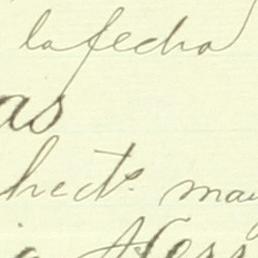 la fecha
as
hect.s may